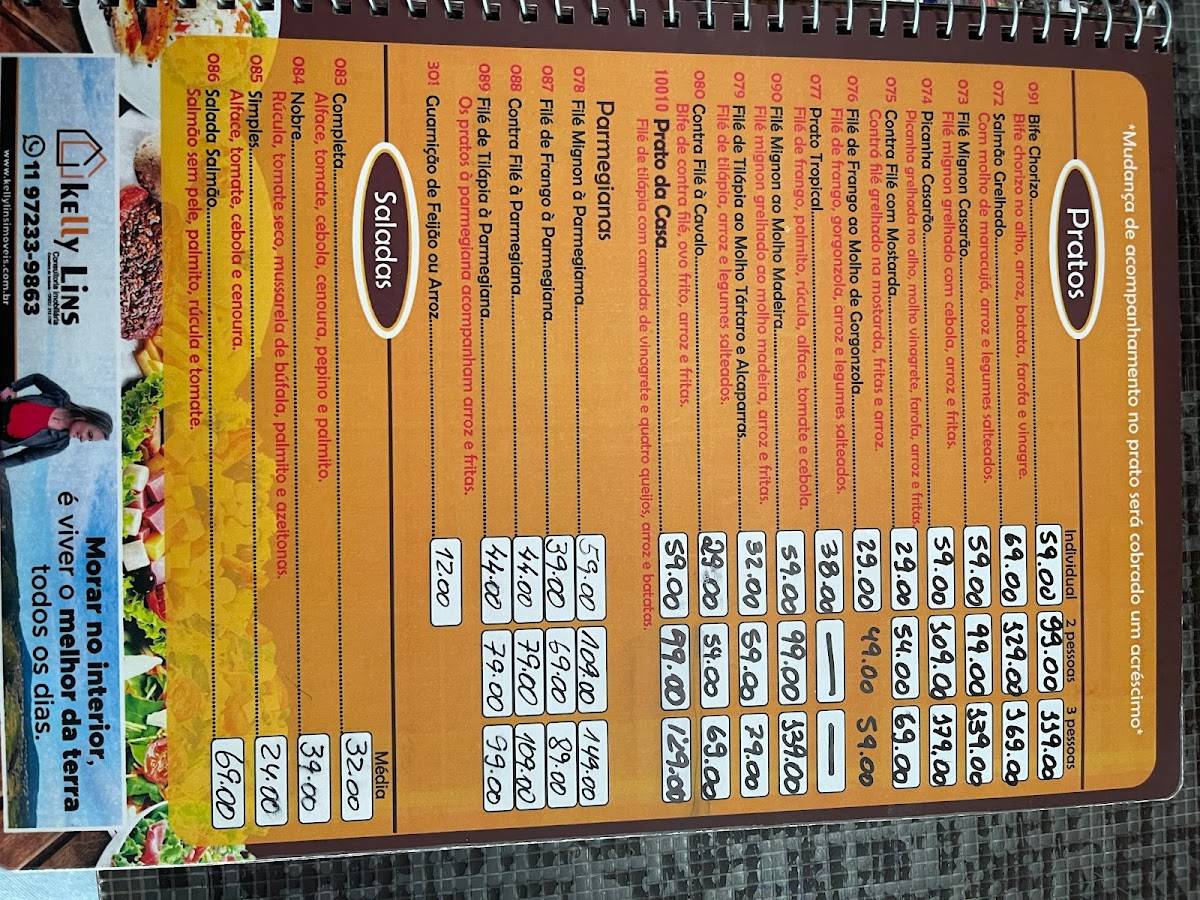 *Mudança de acompanhamento no prato será cobrado um acréscimo*
Pratos
Individual 2 pessoas 3 pessoas
091 Bife Chorizo 59.00 99.00 119.00
Bife chorizo no alho, arroz, batata, farofa e vinagre.
072 Salmão Grelhado 69.00 129.00 169.00
Com molho de maracujá, arroz e legumes salteados.
073 Filé Mignon Casarão 59.00 99.00 139.00
Filé mignon grelhado com cebola, arroz e fritas.
074 Picanha Casarão 59.00 109.00 179.00
Picanha grelhada no alho, molho vinagrete, farofa, arroz e fritas.
075 Contra Filé com Mostarda 29.00 54.00 69.00
Contra filé grelhado na mostarda, fritas e arroz.
076 Filé de Frango ao Molho de Gorgonzola 29.00 49.00 59.00
Filé de frango, gorgonzola, arroz e legumes salteados.
077 Prato Tropical 38.00 — —
Filé de frango, palmito, rúcula, alface, tomate e cebola.
090 Filé Mignon ao Molho Madeira 59.00 99.00 139.00
Filé mignon grelhado ao molho madeira, arroz e fritas.
079 Filé de Tilápia ao Molho Tártaro e Alcaparras 32.00 59.00 79.00
Filé de tilápia, arroz e legumes salteados.
080 Contra Filé à Cavalo 29.00 54.00 69.00
Bife de contra filé, ovo frito, arroz e fritas.
10010 Prato da Casa 59.00 99.00 129.00
Filé de tilápia com camadas de vinagrete e quatro queijos, arroz e batatas.
Parmegianas
078 Filé Mignon à Parmegiana 59.00 109.00 144.00
087 Filé de Frango à Parmegiana 39.00 69.00 89.00
088 Contra Filé à Parmegiana 44.00 79.00 109.00
089 Filé de Tilápia à Parmegiana 44.00 79.00 99.00
Os pratos à parmegiana acompanham arroz e fritas.
301 Guarnição de Feijão ou Arroz 12.00
Saladas
Média
083 Completa 32.00
Alface, tomate, cebola, cenoura, pepino e palmito.
084 Nobre 39.00
Rúcula, tomate seco, mussarela de búfala, palmito e azeitonas.
085 Simples 24.00
Alface, tomate, cebola e cenoura.
086 Salada Salmão 69.00
Salmão sem pele, palmito, rúcula e tomate.
kelly Lins
Consultoria Imobiliária
11 97233-9863
www.kellylinsimoveis.com.br
Morar no interior,
é viver o melhor da terra
todos os dias.